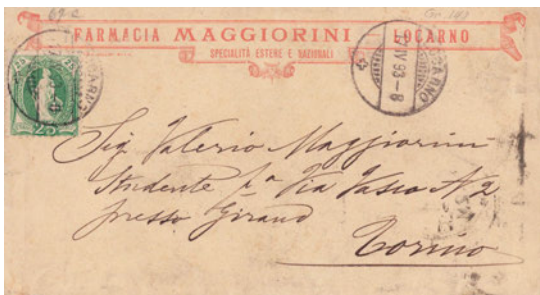 69c
FARMACIA MAGGIORINI LOCARNO
SPECIALITÀ ESTERE E NAZIONALI
LOCARNO
LOCARNO
IV 93-8
25
Sig. Valerio Maggiorini
Studente pª Via Vasco N 2
presso Giraud
Torino